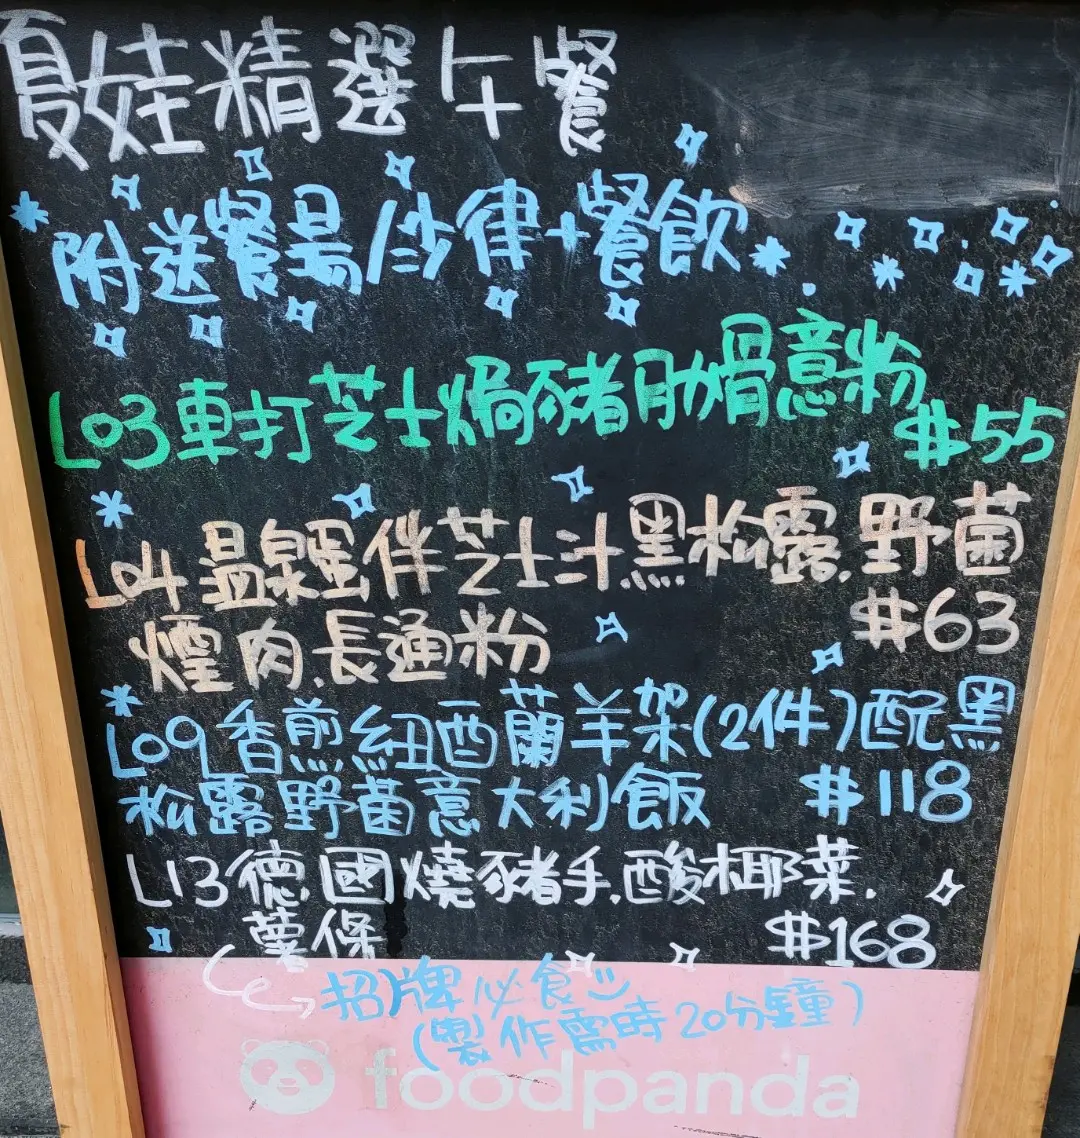 夏娃精選午餐
附送餐湯/沙律+餐飲
L03車打芝士焗豬肋骨意粉
$55
L04溫泉蛋伴芝士汁.黑松露.野菌
煙肉.長通粉
$63
L09香煎紐西蘭羊架(2件)配黑
松露野菌意大利飯 $118
L13德國燒豬手.酸椰菜.
薯條 $168
招牌必食
(製作需時20分鐘)
foodpanda